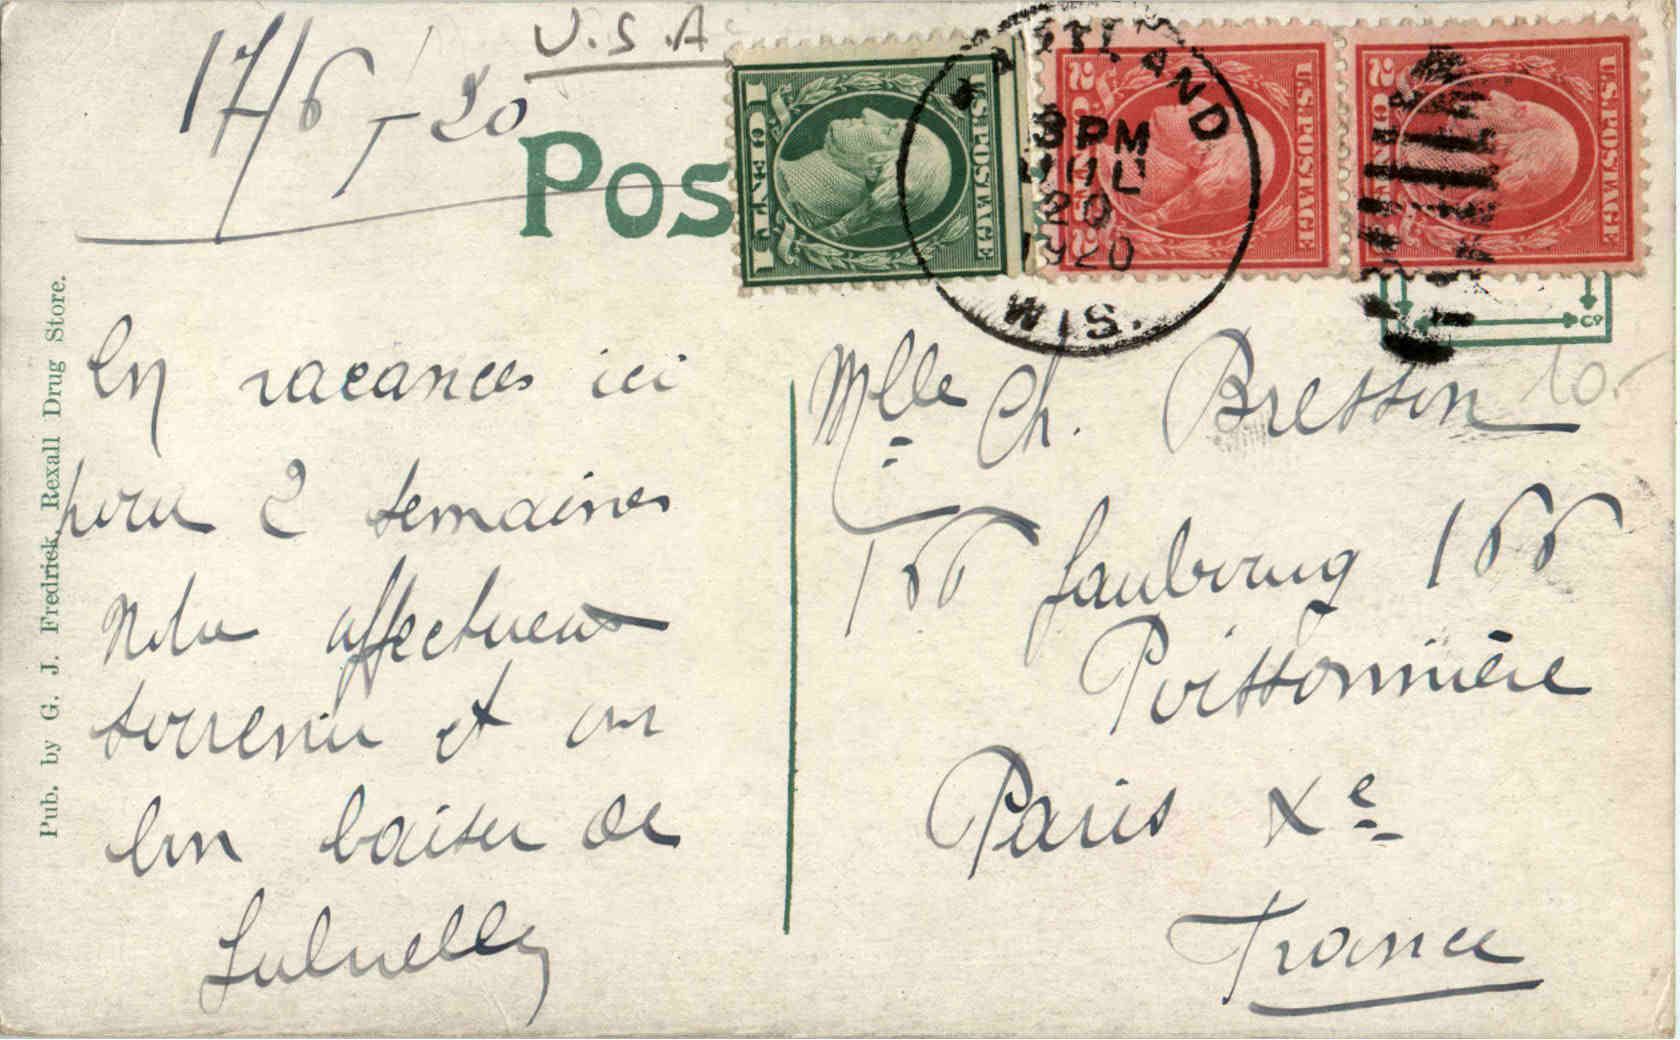 U.S.A
17/6-20
Pos
1 ONE 1
U.S. POSTAGE
2 CENTS 2
U.S. POSTAGE
2 CENTS 2
U.S. POSTAGE
3 PM
20
1920
WIS.
En vacances ici
pour 2 semaines
Notre affectueux
souvenir et un
bon baiser de
Mlle Ch. Bresson
10.-
166 faubourg 166
Poissonnière
Paris Xe
France
Pub. by G. J. Fredrick, Rexall Drug Store.